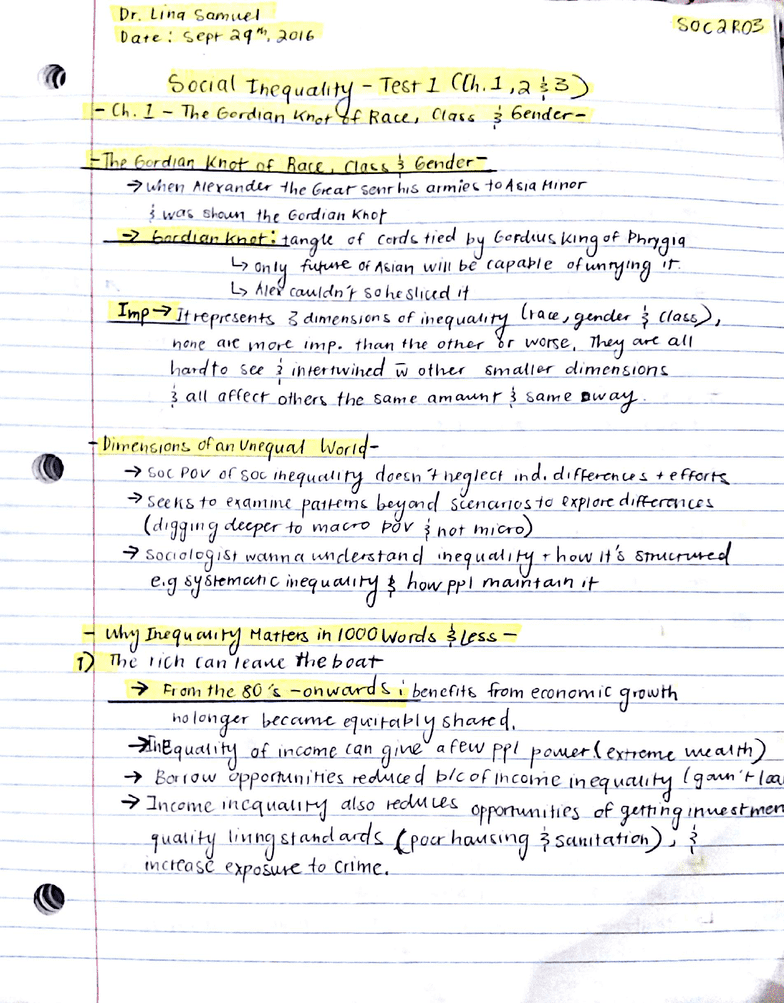 Dr. Lina Samuel
Date: Sept 29th, 2016
SOC2R03
Social Inequality - Test 1 (Ch. 1, 2 & 3)
- Ch. 1 - The Gordian Knot of Race, Class & Gender -
- The Gordian Knot of Race, Class & Gender -
→ When Alexander the Great sent his armies to Asia Minor
& was shown the Gordian Knot
→ Gordian Knot: tangle of cords tied by Gordius King of Phrygia
↳ only future of Asian will be capable of untying it.
↳ Alex couldn't so he sliced it
Imp → It represents 3 dimensions of inequality (race, gender & class),
none are more imp. than the other or worse. They are all
hard to see & intertwined w̄ other smaller dimensions
& all affect others the same amount & same way.
- Dimensions of an Unequal World -
→ Soc POV of soc inequality doesn't neglect ind. differences + efforts
→ Seeks to examine patterns beyond scenarios to explore differences
(digging deeper to macro POV & not micro)
→ Sociologist wanna understand inequality + how it's structured
e.g systematic inequality & how ppl maintain it
- Why Inequality Matters in 1000 Words & Less -
1) The rich can leave the boat
→ From the 80's - onwards: benefits from economic growth
no longer became equitably shared.
→ InEquality of income can give a few ppl power (extreme wealth)
→ Borrow opportunities reduced b/c of income inequality (
→ Income inequality also reduces opportunities of getting investmen
quality living standards (poor housing & sanitation), &
increase exposure to crime.